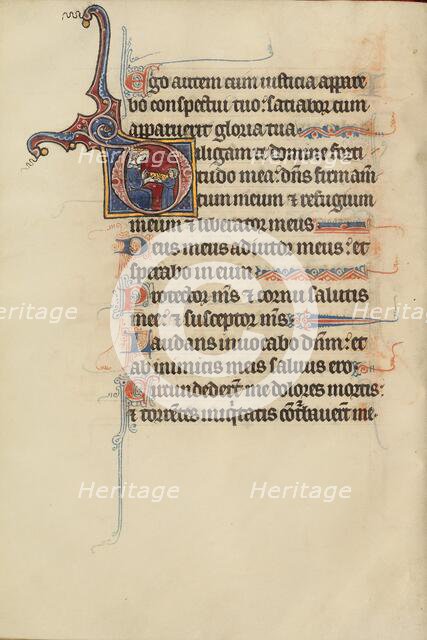 Ego autem cum iusticia appare
bo conspectui tuo: satiabor cum
apparuerit gloria tua
Diligam te domine forti
tudo mea: dñs firmam̃
tum meum et refugium
meum et liberator meus
Deus meus adiutor meus: et
sperabo in eum
Protector mẽs et cornu salutis
mee: et susceptor mẽs
Laudans invocabo dñm: et
ab inimicis meis salvus ero
Circumdederũt me dolores mortis:
et torrẽtes iniquitatis cõturbaverũt me
Heritage Heritage
Heritage Heritage
Heritage Heritage